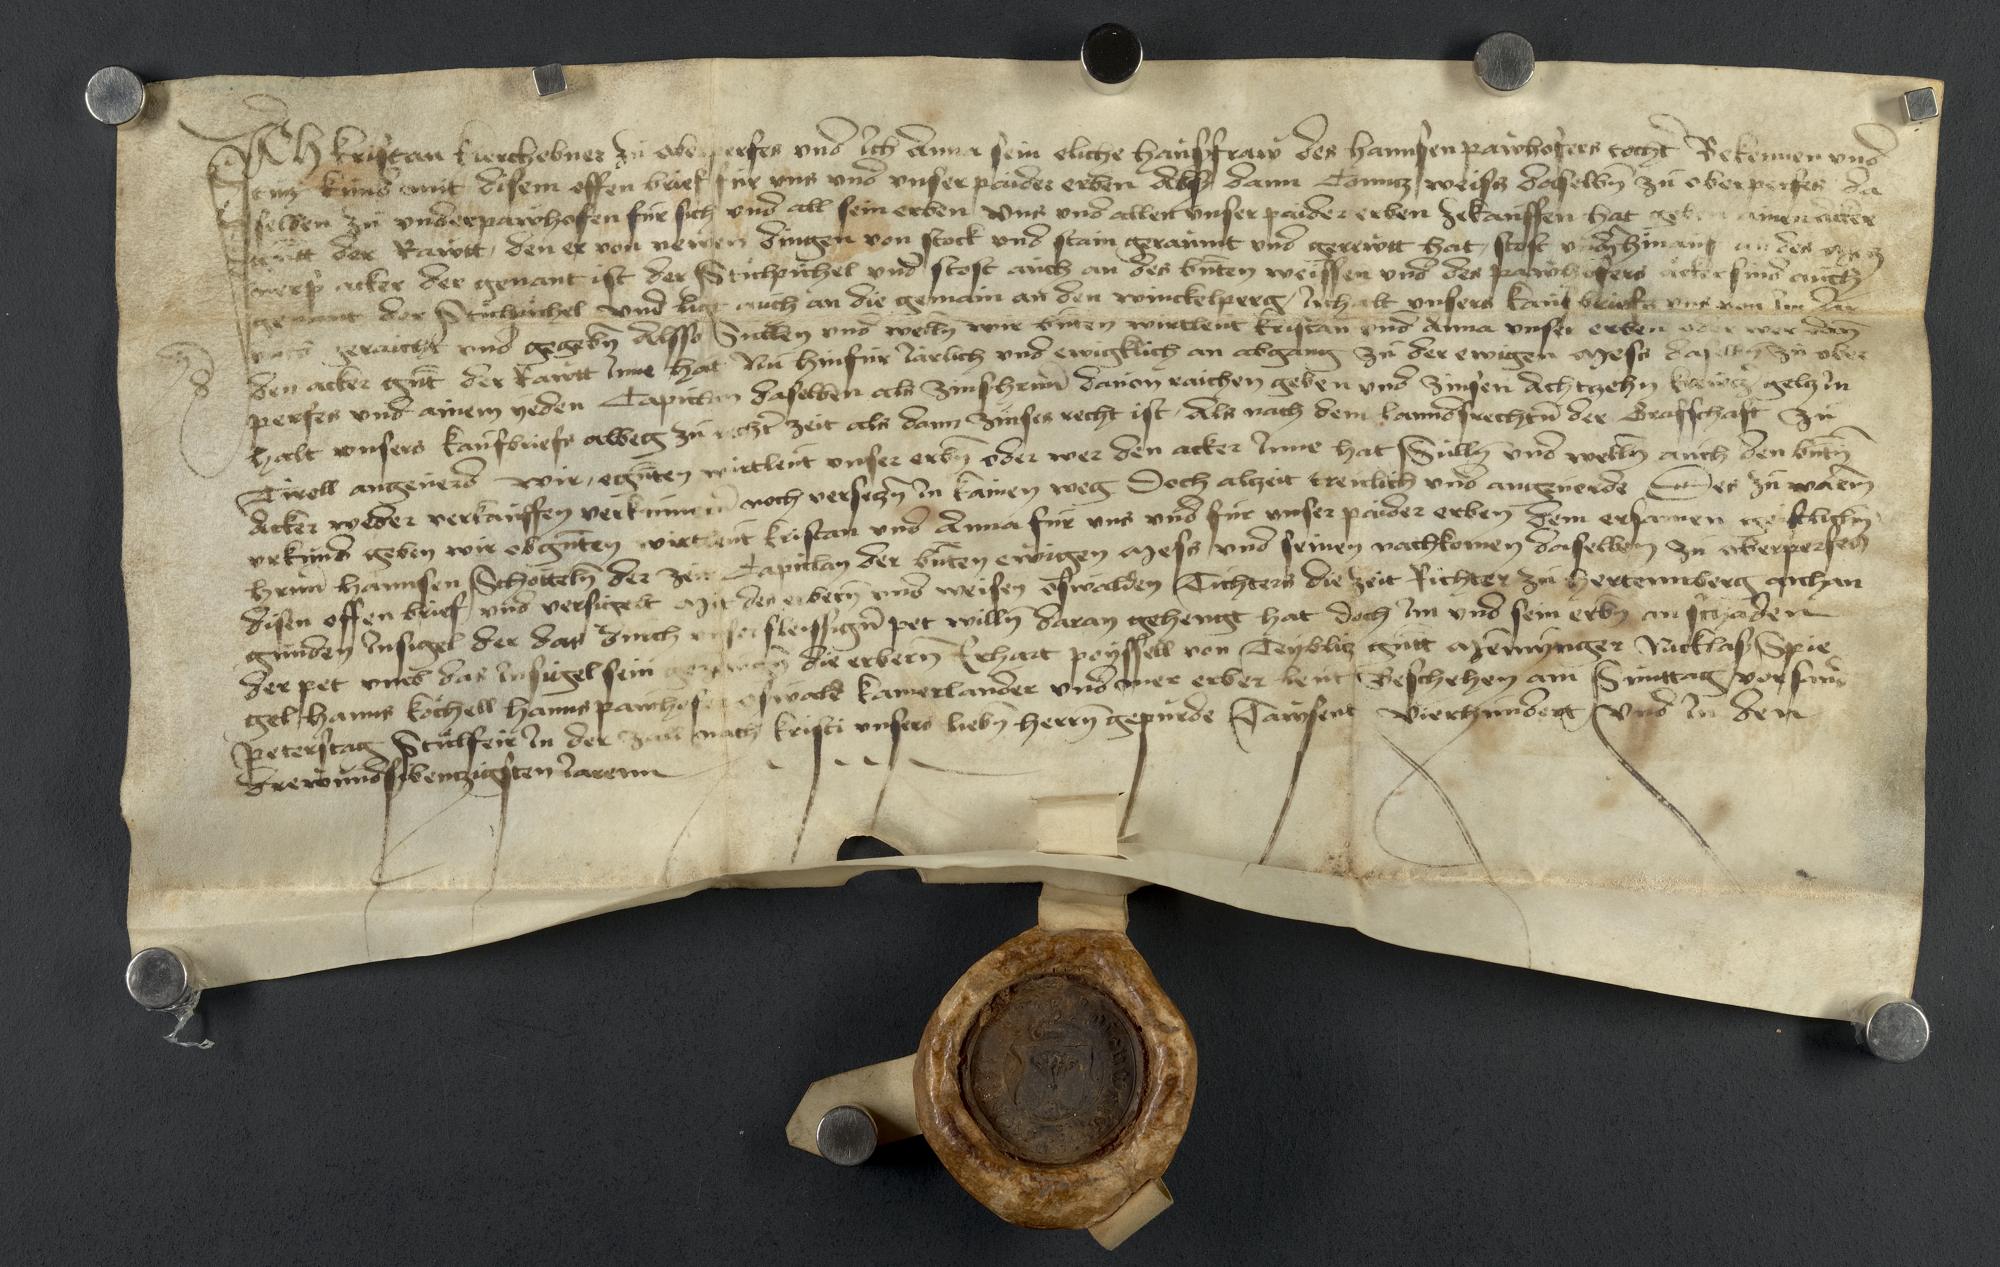 ICH kristan kierchebner zu oberperfes vnd ich Anna sein eliche hausfraw des hannsen pawhofers tocht Bekennen vnd
tun kund mit disem offen brief für vns vnd vnser paider erben Als dann Conntz weiss daselbn zu oberperfes da
selben zu vnderpawhofen für sich vnd all sein erben vns vnd allen vnser paider erben zekauffen hat geben ainen acker
gnt der Rawtt, den er von newen dingen von stock vnd stain geraumt vnd gerewtt hat, stost hinauf an des
acker der genant ist der Stichpichel vnd stost auch an des bnten weissen vnd des pawhofers acker sind auch
genant der Stichpichel vnd ligt auch an die gemain an den winckelperg, Inhalt vnsers kaufbriefs vns von im
geraicht vnd gegebn Alsso Sullen vnd welln wir bnten wirtlent kristan vnd Anna vnser erben oder wer dan
den acker gnt der Rawtt Inne hat Nu hinfür Iärlich vnd ewigklich an abgang zu der ewigen Mess daselbn zu ober
perfes vnd ainem yeden Capplan daselben als zinshrnn dauon raichen geben vnd zinsen Achtzehn kreitzr gelz In
halt vnsers kaufbriefs albeg zu rechtr zeit als dann zinses recht ist, Als nach dem lanndsrechtn der Grafschaft zu
Tiroll angeuerd Wir, egnten wirtlent vnser erbn oder wer den acker Inne hat Sulln vnd welln auch den bntn
Acker weder verkauffen verkümern noch versetzn In kainen weg Doch alzeit trewlich vnd angeuerde Des zu warem
vrkund geben wir obgnten wirtlent kristan vnd Anna für vns vnd für vnser paider erben dem ersamen geistlichn
hrnn hannsen Schötteln der zeit Capplan der bnten ewigen Mess vnd seinen nachkomen daselben zu oberperfes
disen offen brief, vnd versigelt Mit des erbern vnd weisen oswalden Tichters die zeit Richter zu hertennberg anhan
gunden Insigel der das durch vnser fleissign pet willn daran gehengt hat doch Im vnd sein erbn an schaden
der pet vmb das Insigel sein gezewgn die erbern Erhart peyssell von gnt Mennynger Nicklas Spie
gel hanns köchell hanns pawhofer oswald kamerlander vnd mer erber lewt Beschehen am Sunttag vor sand
peterstag Stulfeir In der zall nach kristi vnsers liebn herrn gepurde Tawsent vierhundert vnd In den
drewundsibentzigsten Iarenn